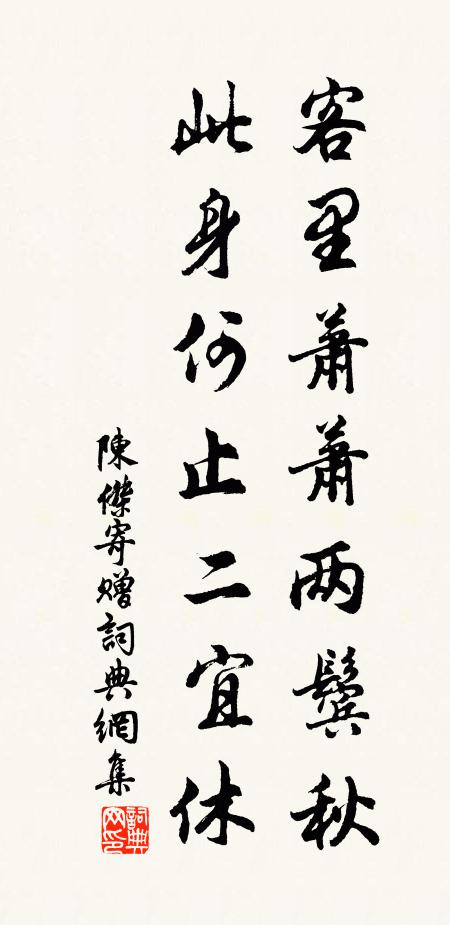 客里蕭蕭两鬓秋
此身何止二宜休
陳傑寄贈詞典網集
詞典
网印